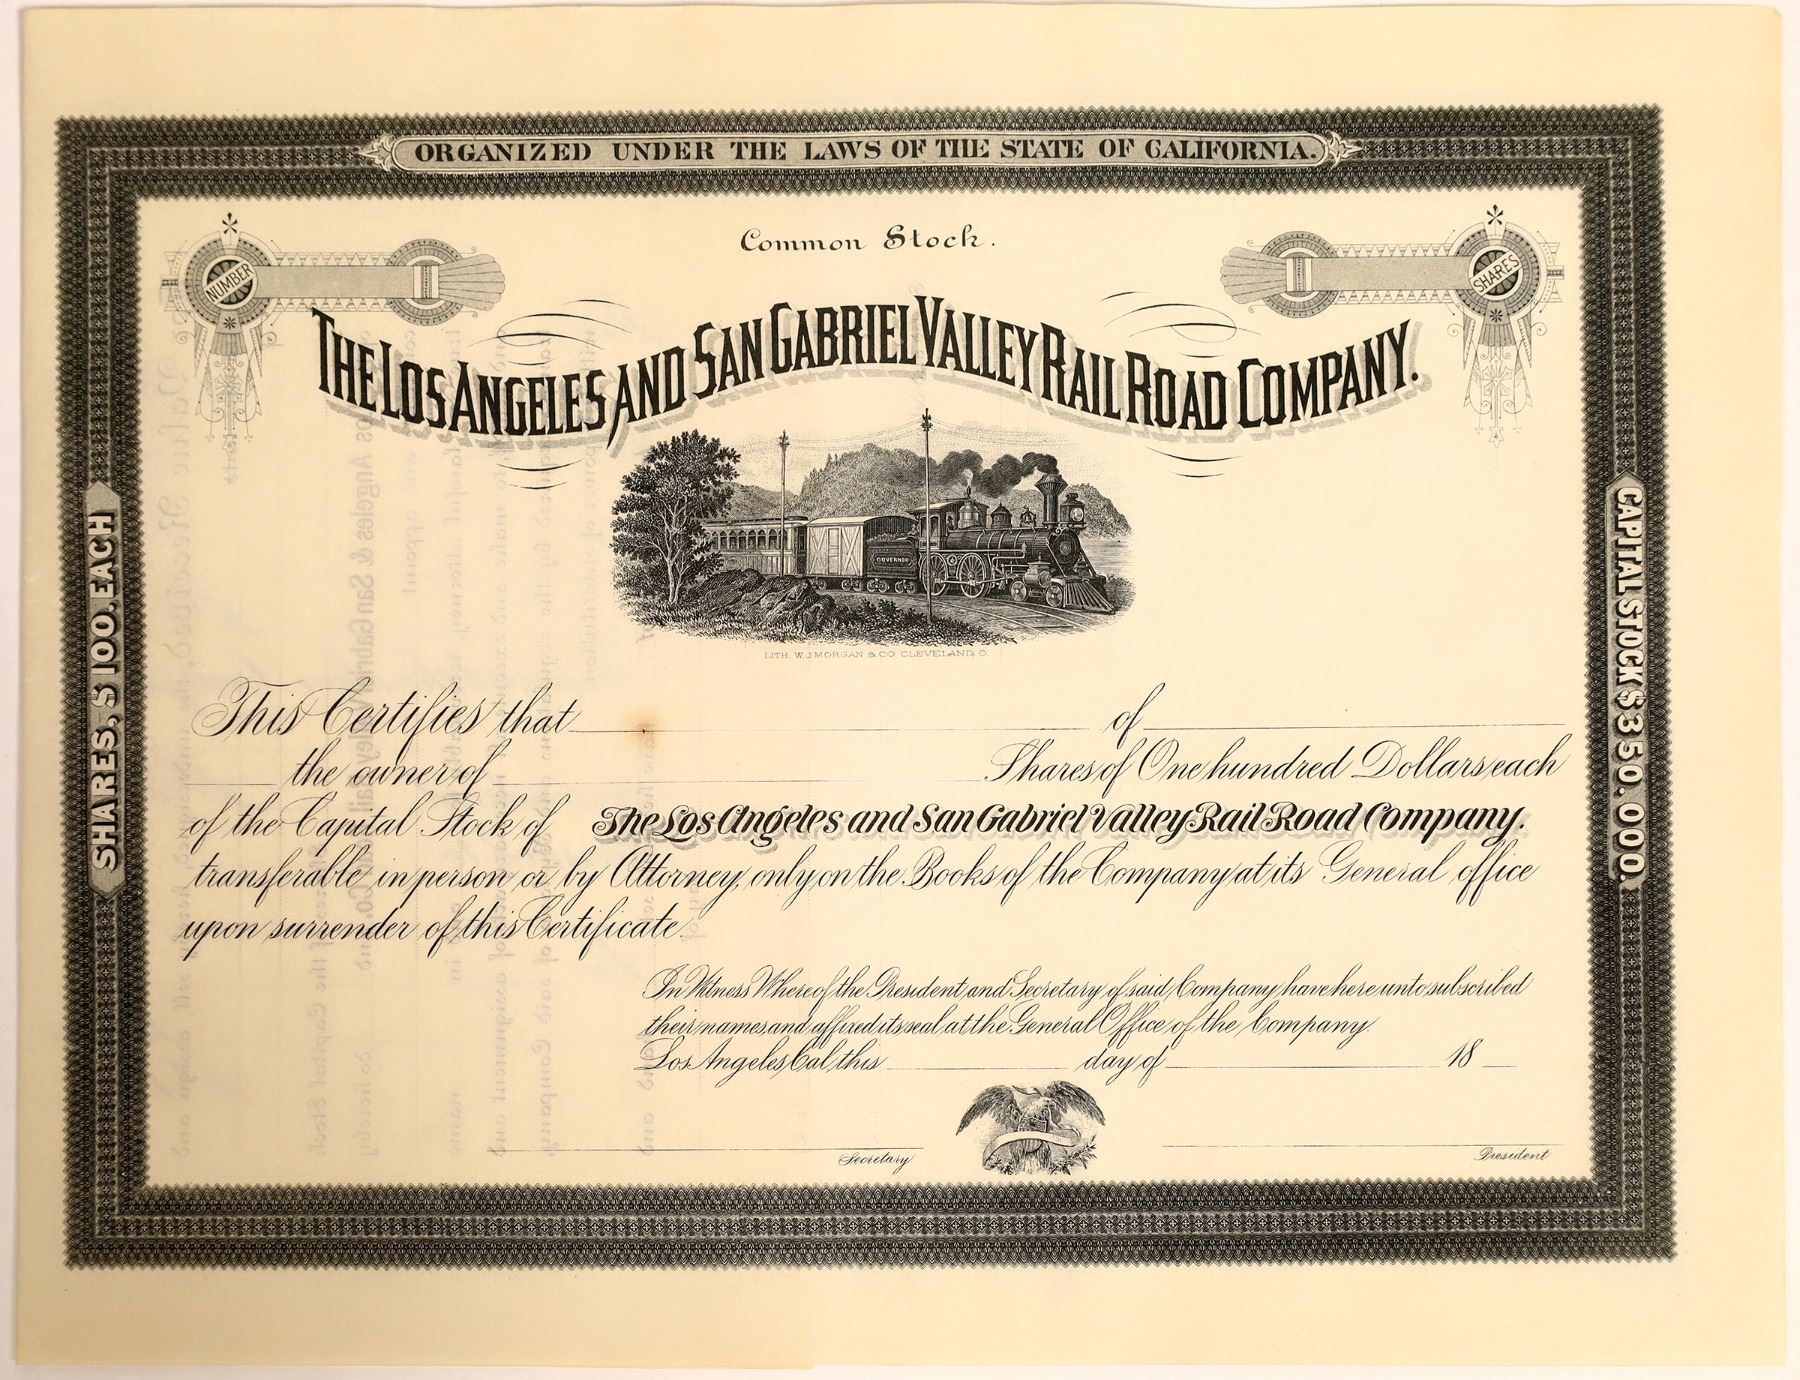 ORGANIZED UNDER THE LAWS OF THE STATE OF CALIFORNIA.
Common Stock.
NUMBER
SHARES
THE LOS ANGELES AND SAN GABRIEL VALLEY RAIL ROAD COMPANY.
GOVERNOR
LITH. W.J.MORGAN & CO. CLEVELAND, O.
SHARES, $100. EACH
CAPITAL STOCK $350.000.
This Certifies that of
the owner of Shares of One hundred Dollars each
of the Capital Stock of The Los Angeles and San Gabriel Valley Rail Road Company.
transferable in person or by Attorney, only on the Books of the Company at its General office
upon surrender of this Certificate.
In Witness Whereof the President and Secretary of said Company have hereunto subscribed
their names and affixed its seal at the General Office of the Company
Los Angeles, Cal, this day of 18
Secretary
President